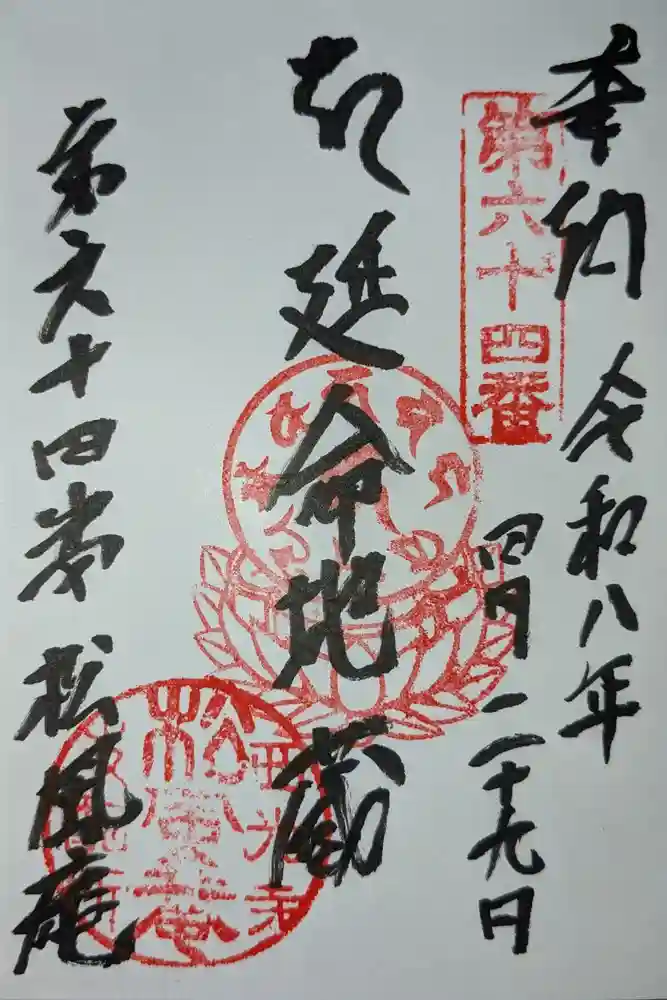 奉納 令和八年
四月二十九日
第六十四番
延命地蔵
第六十四番 松風庵
松風庵
西光寺